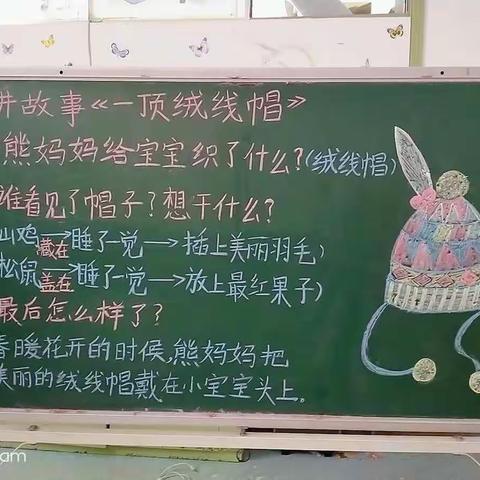 讲故事《一顶绒线帽》
熊妈妈给宝宝织了什么?(绒线帽)
谁看见了帽子?想干什么?
山鸡→睡了一觉→插上美丽羽毛)
藏在
松鼠→睡了一觉→放上最红果子)
盖在
最后怎么样了?
春暖花开的时候,熊妈妈把
美丽的绒线帽戴在小宝宝头上。